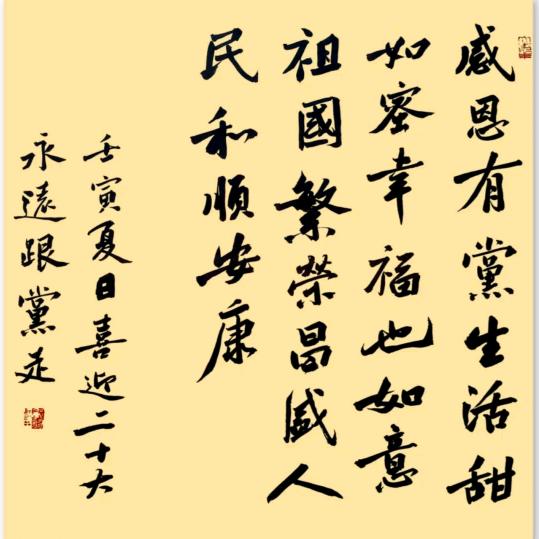 感恩有黨生活甜
如蜜幸福也如意
祖國繁榮昌盛人
民和順安康
壬寅夏日喜迎二十大
永遠跟黨走